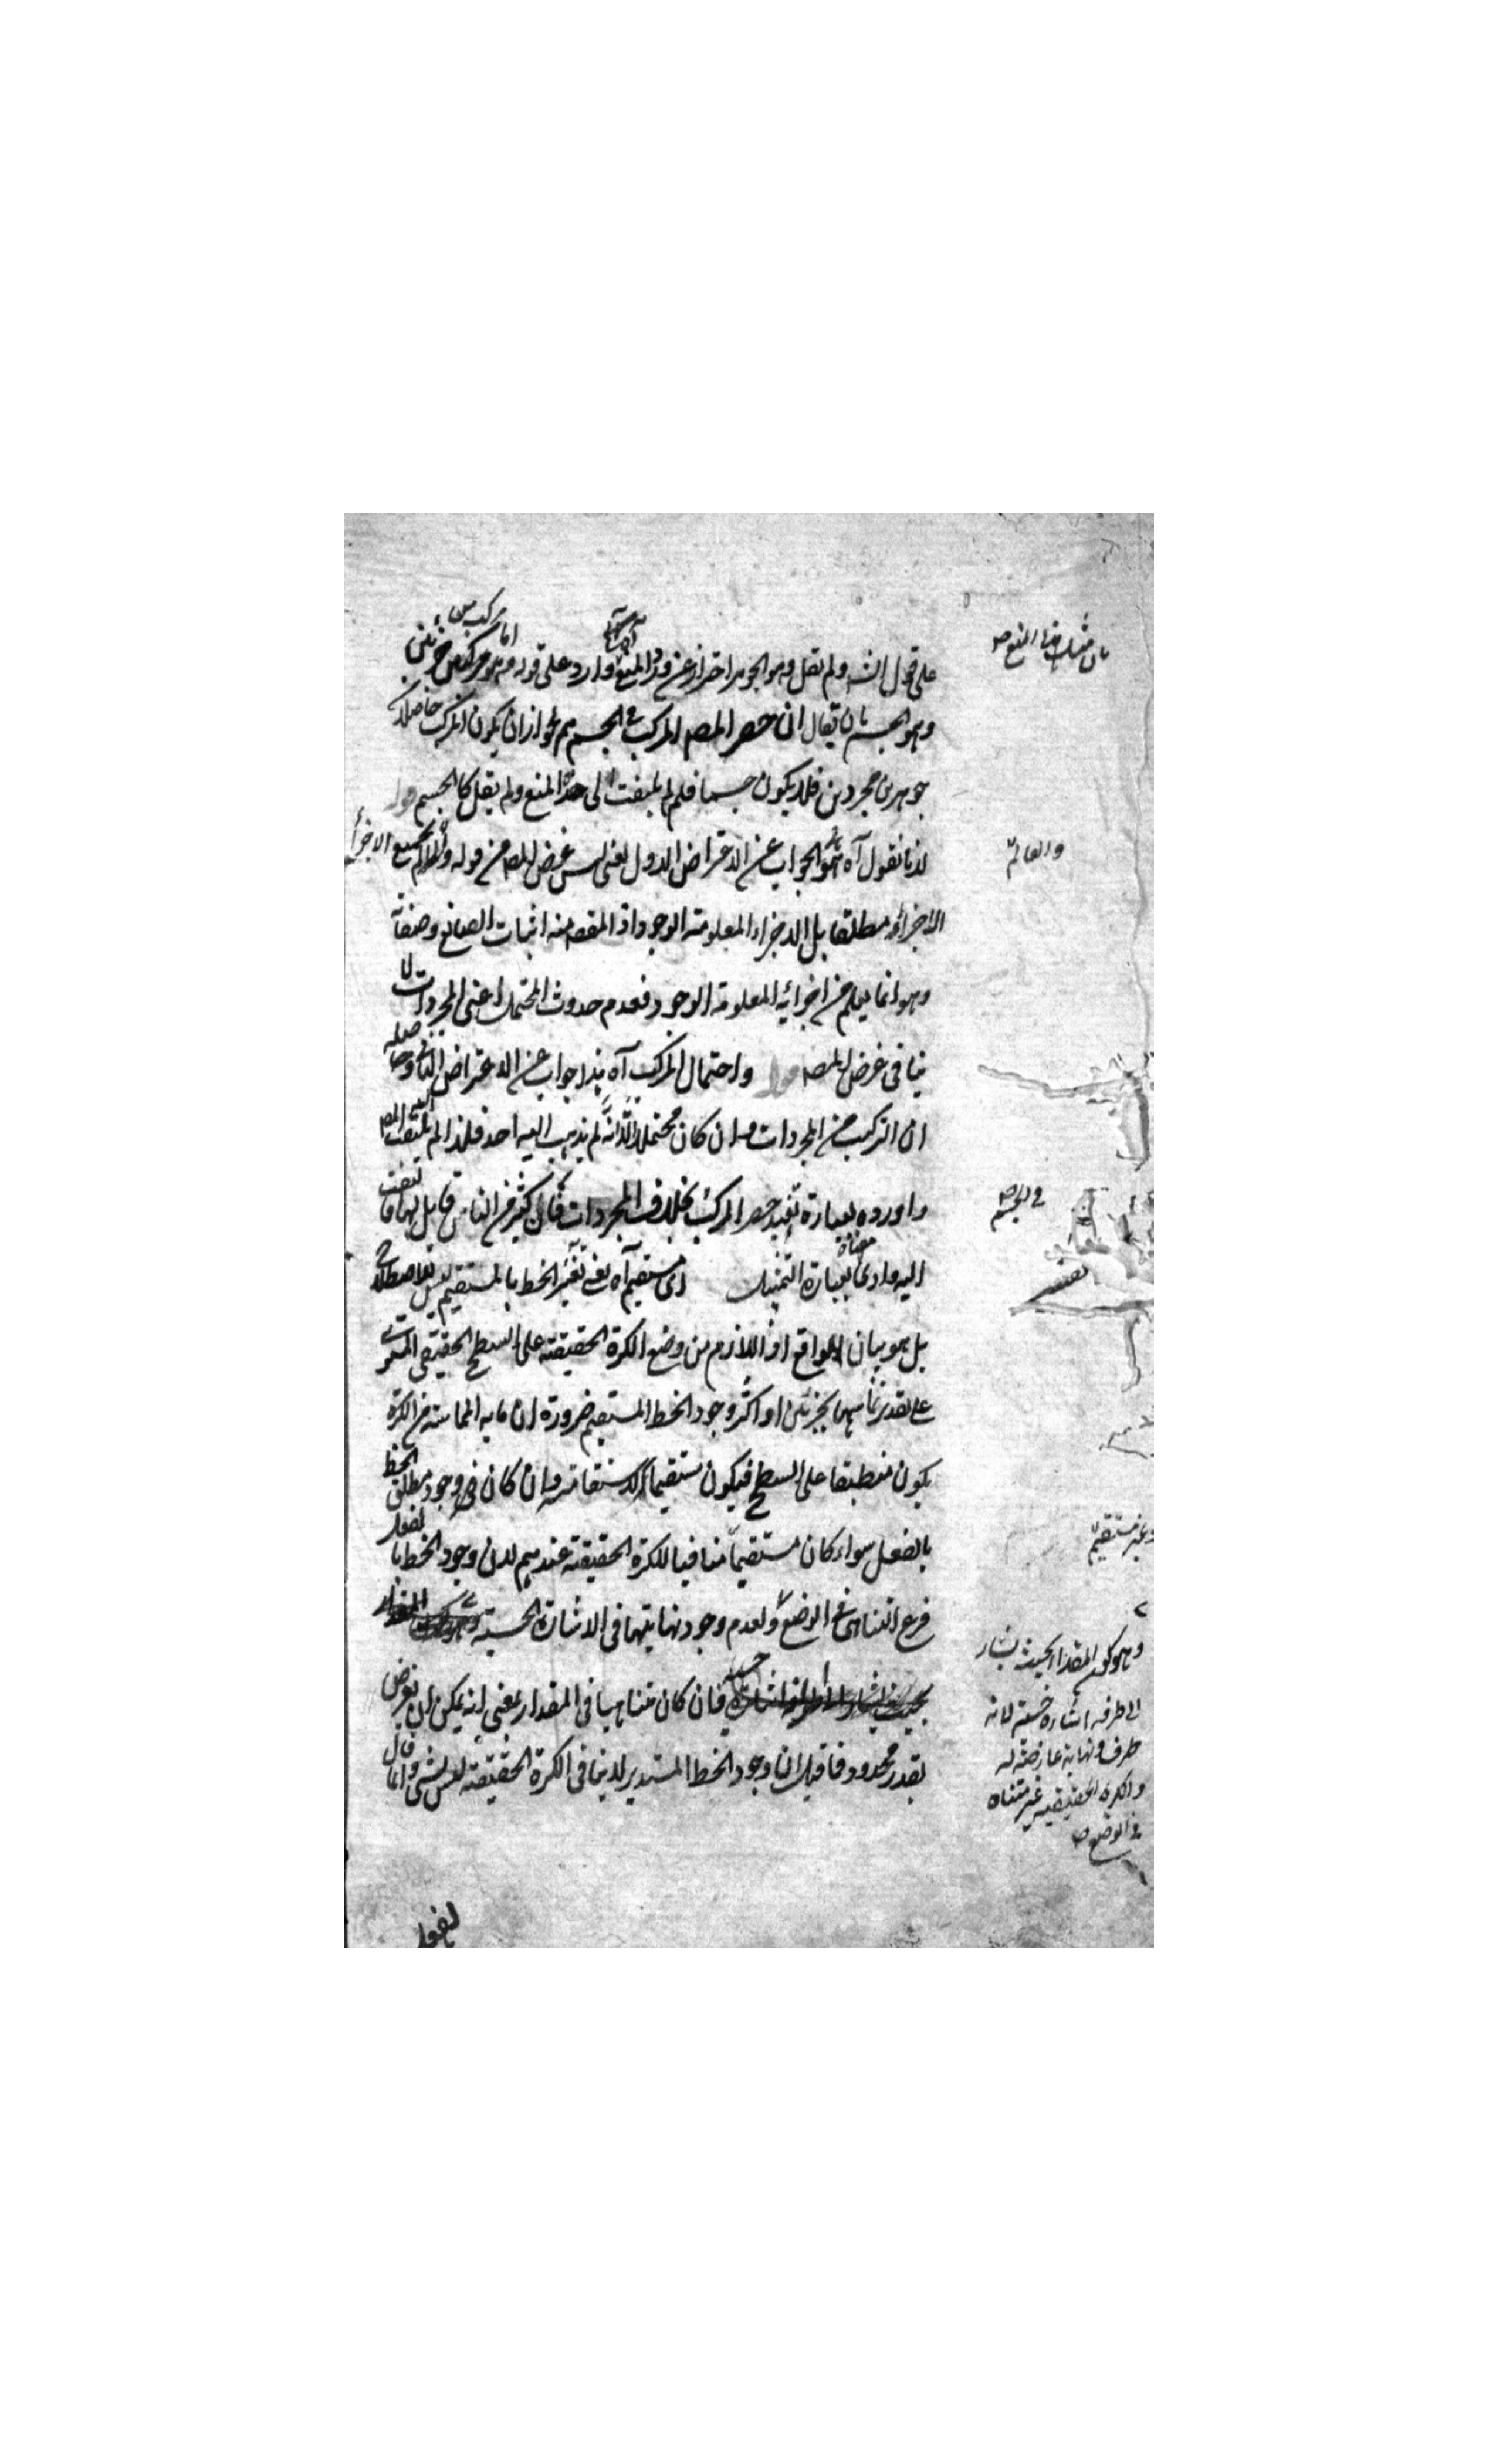 على قول الش ولم يقل وهو الجوهر احترازا عن ورود المنع وارد على قوله وهو اما مركب من جزئين
وهو الجسم بان يقال ان حصر المصـ المركب في الجسم مم لجواز ان يكون المركب حاصلا من
جوهرين مجردين فلا يكون جسما فلم لم يلتفت الى هذا المنع ولم يقل كالجسم قوله
لانا نقول آه هو الجواب عن الاعتراض الاول يعني ليس غرض المصـ من قوله والعالم بجميع الاجزاء
الاجزاء مطلقا بل الاجزاء المعلومة الوجود اذ المقصـ منه اثبات الصانع وصفاته
وهو انما يعلم من اجزائه المعلومة الوجود فعدم حدوث المحتمل اعني المجردات لا
ينافي غرض المصـ قوله واحتمال المركب آه هذا جواب عن الاعتراض الثاني وحاصله
ان التركيب من المجردات وان كان محتملا الا انه لم يذهب اليه احد فلذا لم يلتفت اليه المصـ
واورده بعبارة تفيد حصر المركب بخلاف المجردات فان كثير من الناس قايل بها فالتفت
اليه وادى معناه بعبارة التمثيل اى مستقيم آه يعني تقييد الخط بالمستقيم ليس للاصطلاح
بل هو بيان للواقع اذ اللازم من وضع الكرة الحقيقية على السطح الحقيقي المستوى
على تقدير تماسهما بجزئين او اكثر وجود الخط المستقيم ضرورة ان ما به المماسة من الكرة
يكون منطبقا على السطح فيكون مستقيما لاستقامته وان كان وجود مطلق الخط
بالفعل سواء كان مستقيما منافيا للكرة الحقيقية عندهم لان وجود الخط بالفعل
فرع التناهي في الوضع ولعدم وجود نهايتها في الاشارة الحسية
فان كان متناهيا في المقدار بمعنى انه يمكن ان يفرض
بقدر محدود فما قيل ان وجود الخط المستدير لا ينافي الكرة الحقيقية ليس بشئ وانما قال
بان مثل هذا المنع صـ
والعالم
في الجسم صـ
او غير مستقيم
وهو كون المقدار بحيث يشار
الى طرفه اشارة حسية لانه
طرف ونهاية عارضة له
والكرة الحقيقية غير متناه
في الوضع صـ